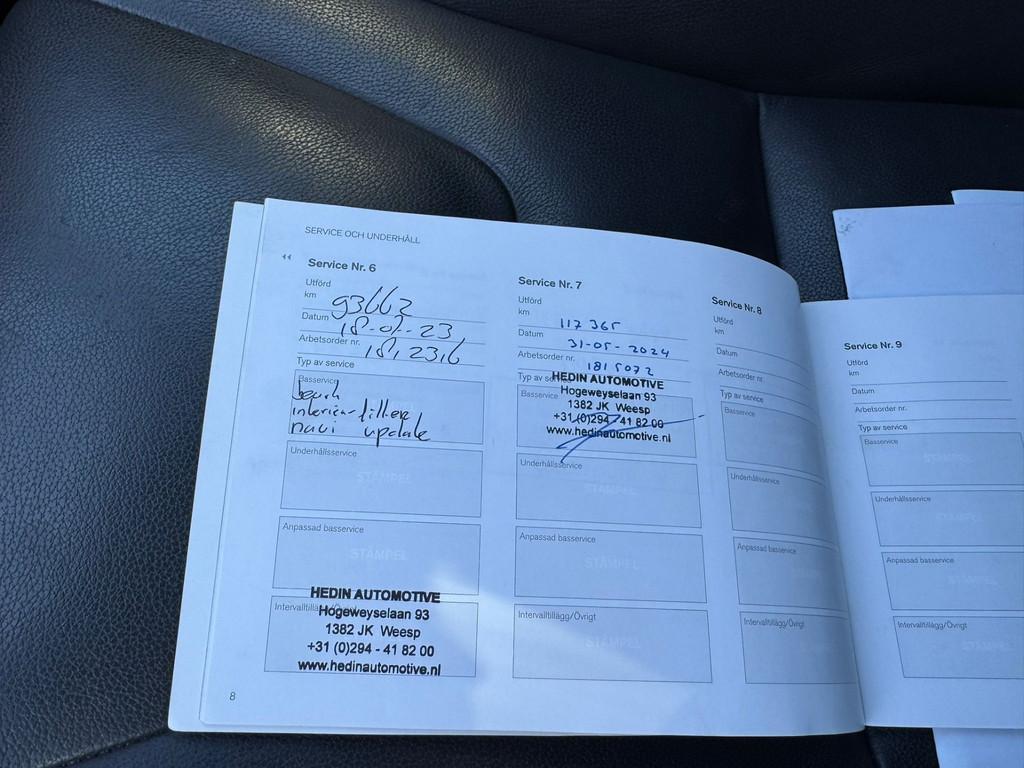 SERVICE OCH UNDERHÅLL
Service Nr. 6
Utförd
km 93662
Datum 18-07-23
Arbetsorder nr. 1812316
Typ av service
Basservice
beurh
interieur filter
navi update
Underhållsservice
STÄMPEL
Anpassad basservice
STÄMPEL
Intervalltillägg/Övrigt
HEDIN AUTOMOTIVE
Hogeweyselaan 93
1382 JK Weesp
+31 (0)294 - 41 82 00
www.hedinautomotive.nl
8
Service Nr. 7
Utförd
km 117 365
Datum 31-05-2024
Arbetsorder nr. 1815072
Typ av service
Basservice
HEDIN AUTOMOTIVE
Hogeweyselaan 93
1382 JK Weesp
+31 (0)294 - 41 82 00
www.hedinautomotive.nl
Underhållsservice
STÄMPEL
Anpassad basservice
STÄMPEL
Intervalltillägg/Övrigt
STÄMPEL
Service Nr. 8
Utförd
km
Datum
Arbetsorder nr.
Typ av service
Basservice
Underhållsservice
Anpassad basservice
Intervalltillägg/Övrigt
Service Nr. 9
Utförd
km
Datum
Arbetsorder nr.
Typ av service
Basservice
Underhållsservice
Anpassad basservice
Intervalltillägg/Övrigt